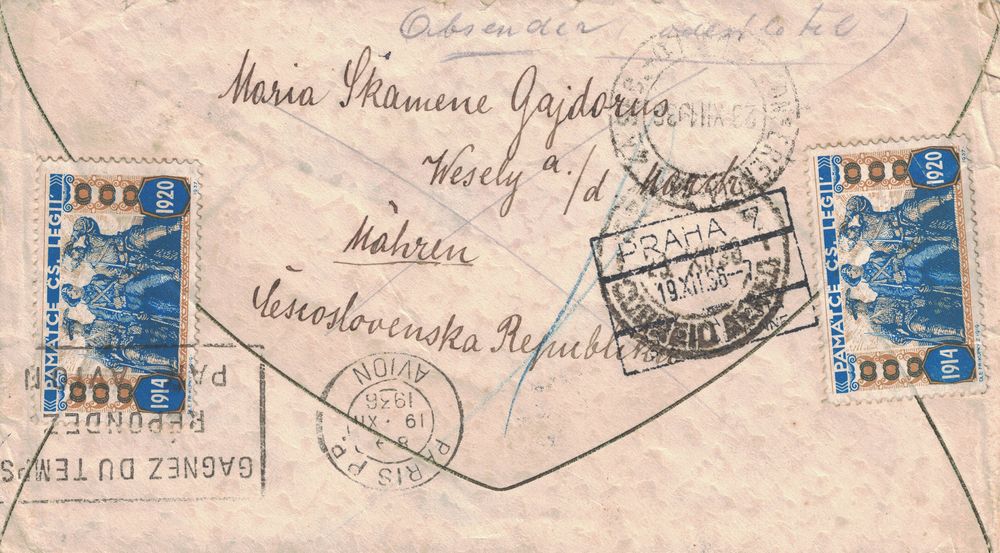 Absender
Maria Škamene Gajdorus
Wesely a./d March
Mähren
Československa Republika
PAMÁTCE ČS. LEGIÍ
1914 1920
PAMÁTCE ČS. LEGIÍ
1914 1920
PRAHA 7
19.XII.36-7
CORREIO AEREO
23 XII 36
PARIS P.P.
19 XII
1936
AVION
GAGNEZ DU TEMPS
RÉPONDEZ
PAR AVION